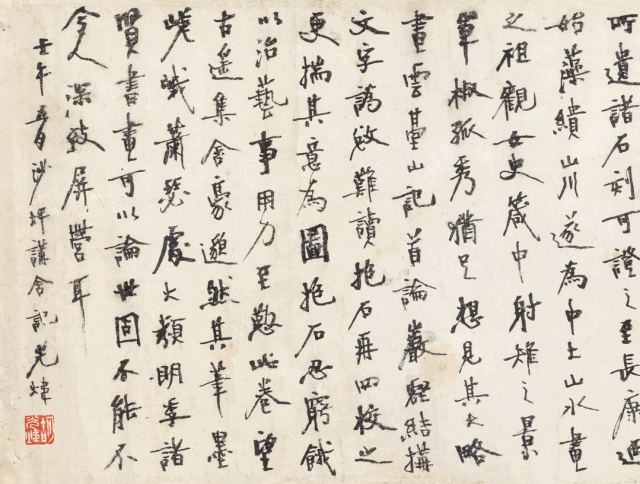 所遺諸石刻可證之至長康迺
始藻繢山川遂為中土山水畫
之祖觀女史箴中射雉之景
單椒孤秀猶足想見其大略
畫雲臺山記首論巖壑結搆
文字譌敚難讀抱石再四校之
更揣其意為圖抱石忍窮餓
以治藝事用力至懃此卷望
古遙集含豪邈然其筆墨
嶢峨蕭瑟處大類明季諸
賢書畫可以論世固不能不
令人深致屏營耳
壬午五月沙坪講舍記光煒
胡光煒